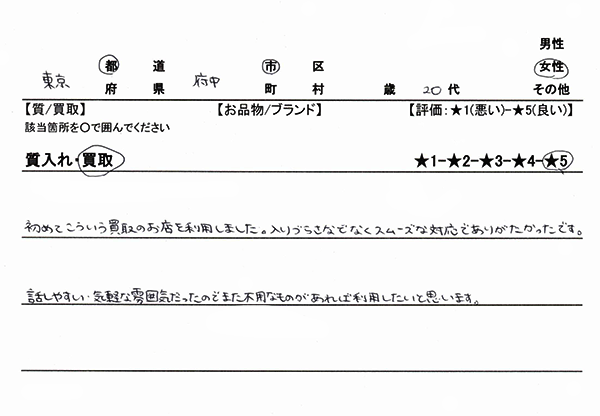 男性
都 道 市 区 女性
東京 府中
府 県 町 村 歳 20代 その他
【質/買取】 【お品物/ブランド】 【評価:★1(悪い)-★5(良い)】
該当箇所を〇で囲んでください
質入れ・買取 ★1-★2-★3-★4-★5
初めてこういう買取のお店を利用しました。入りづらさなどなくスムーズな対応でありがたかったです。
話しやすい・気軽な雰囲気だったのでまた不用なものがあれば利用したいと思います。